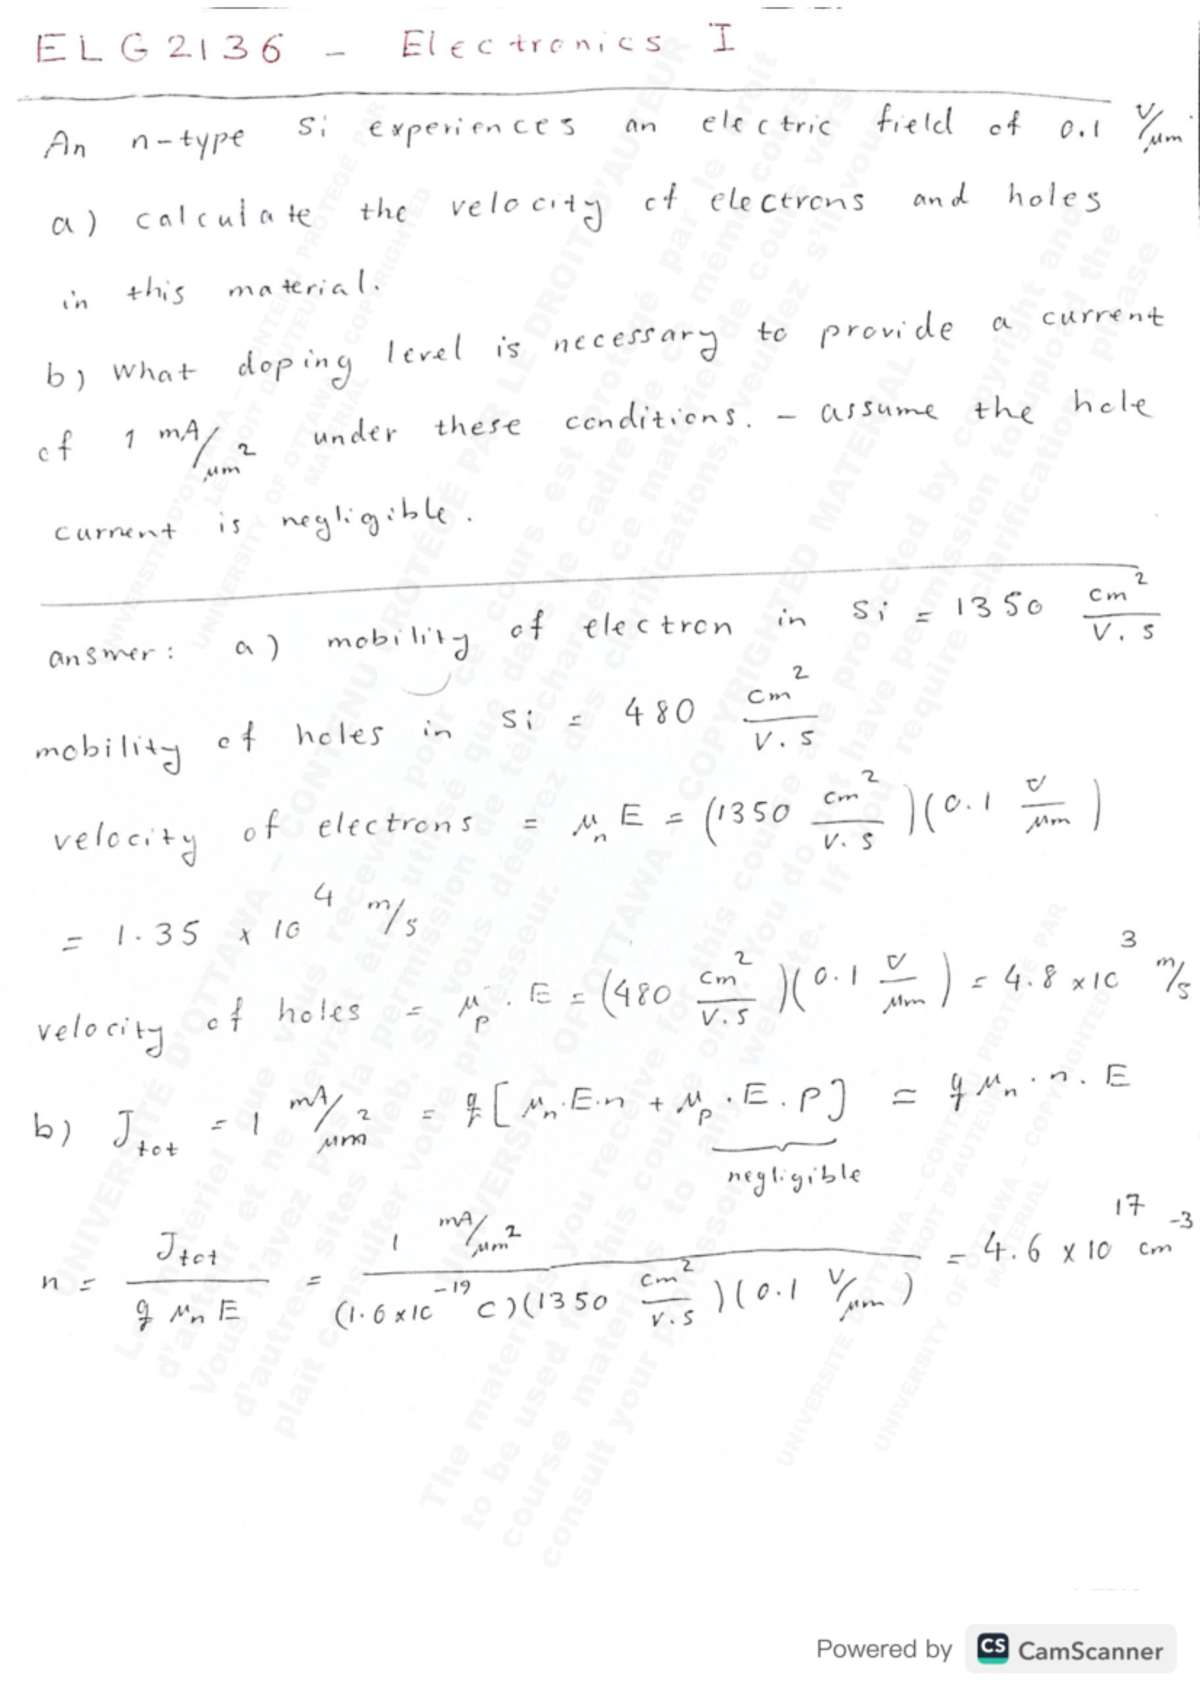 ELG2136 - Electronics I
An n-type Si experiences an electric field of 0.1 V/μm.
a) calculate the velocity of electrons and holes
in this material.
b) What doping level is necessary to provide a current
of 1 mA/μm² under these conditions. - assume the hole
current is negligible.
answer: a) mobility of electron in Si = 1350 cm²/V.s
mobility of holes in Si = 480 cm²/V.s
velocity of electrons = μn E = (1350 cm²/V.s)(0.1 V/μm)
= 1.35 x 10⁴ m/s
velocity of holes = μp . E = (480 cm²/V.s)(0.1 V/μm) = 4.8 x10³ m/s
b) Jtot = 1 mA/μm² = q[μn.E.n + μp.E.P] = q μn.n.E
negligible
n = Jtot/q μn E = 1 mA/μm²/(1.6x10⁻¹⁹ C)(1350 cm²/V.s)(0.1 V/μm) = 4.6 x 10¹⁷ cm⁻³
Powered by CS CamScanner